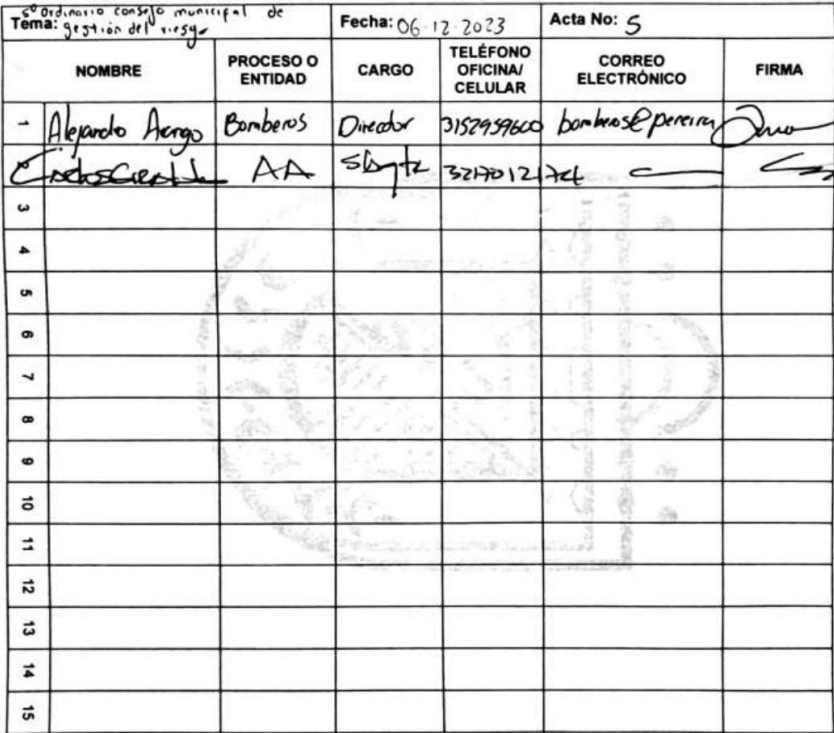 Tema: 5º Ordinario consejo municipal de
gestión del riesgo
Fecha: 06-12-2023
Acta No: 5
NOMBRE
PROCESO O
ENTIDAD
CARGO
TELÉFONO
OFICINA/
CELULAR
CORREO
ELECTRÓNICO
FIRMA
1 Alejandro Arango Bomberos Director 3152959600 bomberos@pereira
2 AA
3
4
5
6
7
8
9
10
11
12
13
14
15